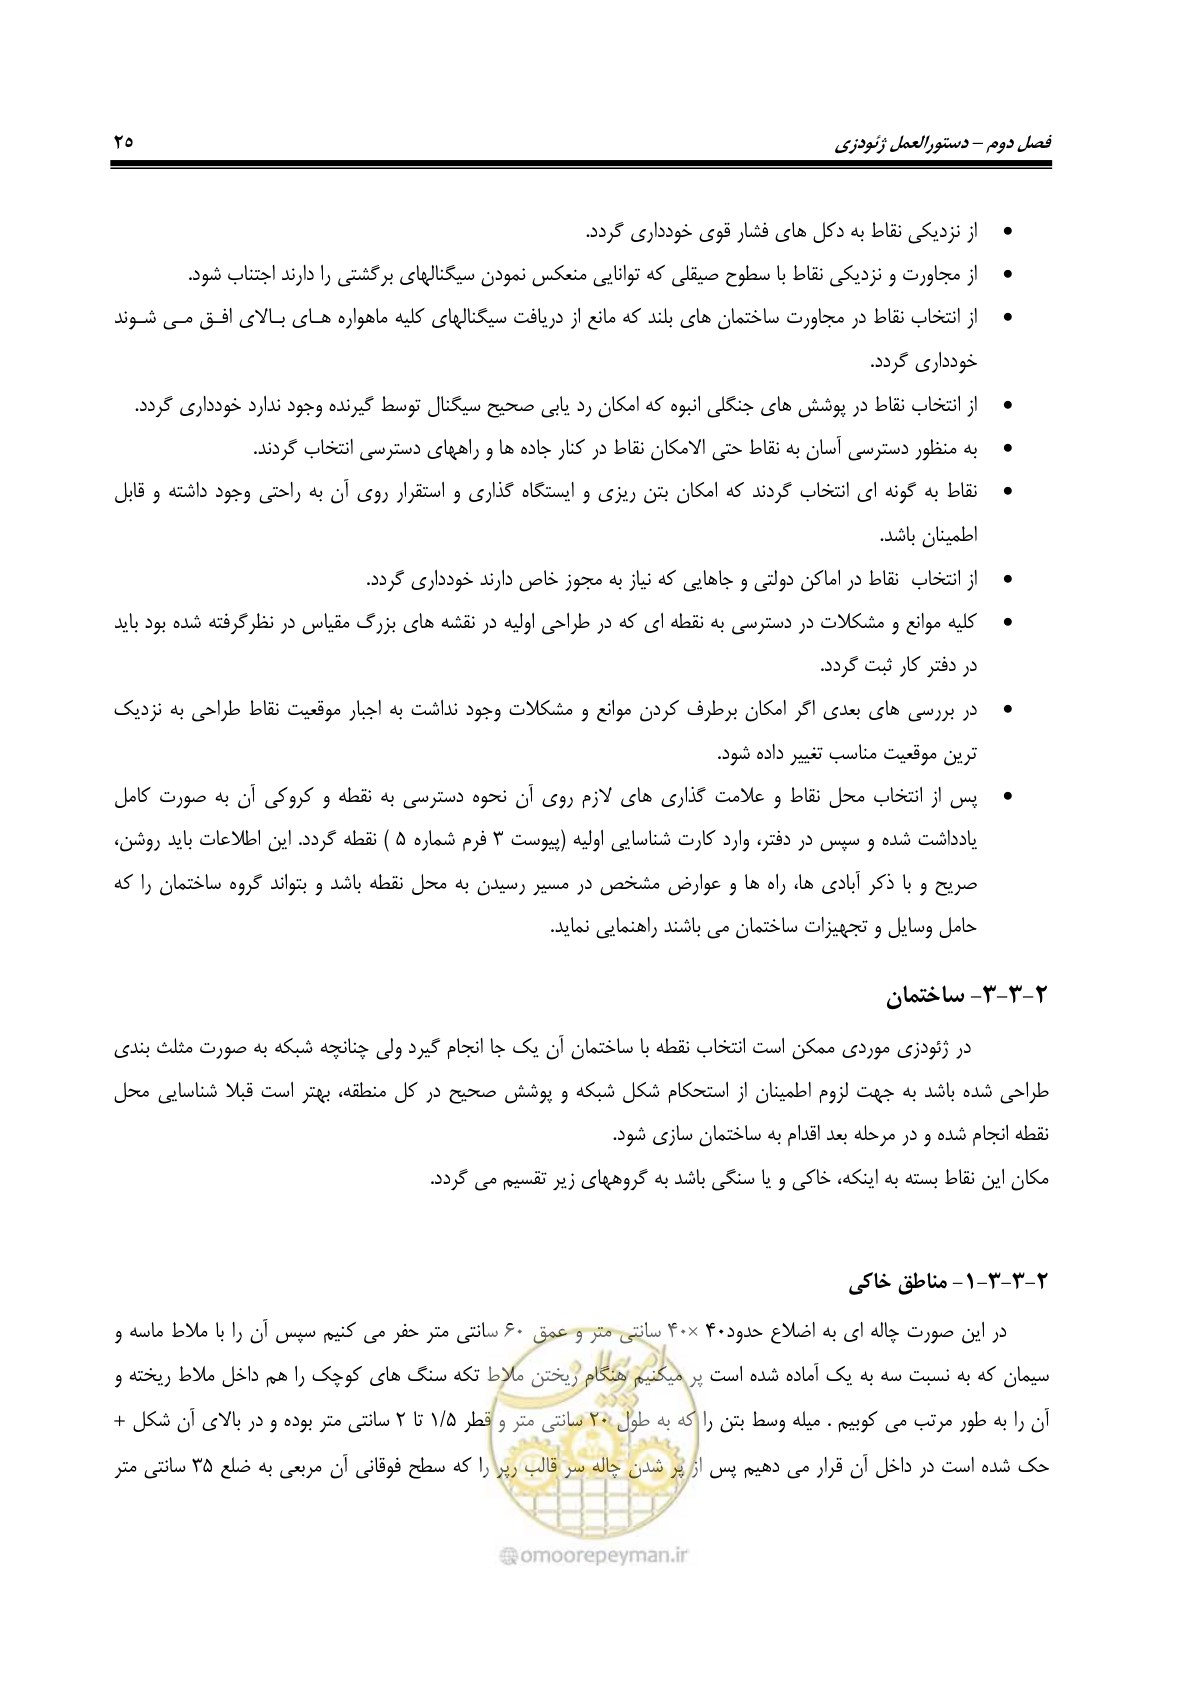 فصل دوم – دستورالعمل ژئودزی ۲۵
• از نزدیکی نقاط به دکل های فشار قوی خودداری گردد.
• از مجاورت و نزدیکی نقاط با سطوح صیقلی که توانایی منعکس نمودن سیگنالهای برگشتی را دارند اجتناب شود.
• از انتخاب نقاط در مجاورت ساختمان های بلند که مانع از دریافت سیگنالهای کلیه ماهواره هـای بـالای افـق مـی شـوند
خودداری گردد.
• از انتخاب نقاط در پوشش های جنگلی انبوه که امکان رد یابی صحیح سیگنال توسط گیرنده وجود ندارد خودداری گردد.
• به منظور دسترسی آسان به نقاط حتی الامکان نقاط در کنار جاده ها و راههای دسترسی انتخاب گردند.
• نقاط به گونه ای انتخاب گردند که امکان بتن ریزی و ایستگاه گذاری و استقرار روی آن به راحتی وجود داشته و قابل
اطمینان باشد.
• از انتخاب نقاط در اماکن دولتی و جاهایی که نیاز به مجوز خاص دارند خودداری گردد.
• کلیه موانع و مشکلات در دسترسی به نقطه ای که در طراحی اولیه در نقشه های بزرگ مقیاس در نظرگرفته شده بود باید
در دفتر کار ثبت گردد.
• در بررسی های بعدی اگر امکان برطرف کردن موانع و مشکلات وجود نداشت به اجبار موقعیت نقاط طراحی به نزدیک
ترین موقعیت مناسب تغییر داده شود.
• پس از انتخاب محل نقاط و علامت گذاری های لازم روی آن نحوه دسترسی به نقطه و کروکی آن به صورت کامل
یادداشت شده و سپس در دفتر، وارد کارت شناسایی اولیه (پیوست ۳ فرم شماره ۵ ) نقطه گردد. این اطلاعات باید روشن،
صریح و با ذکر آبادی ها، راه ها و عوارض مشخص در مسیر رسیدن به محل نقطه باشد و بتواند گروه ساختمان را که
حامل وسایل و تجهیزات ساختمان می باشند راهنمایی نماید.
۲-۳-۳- ساختمان
در ژئودزی موردی ممکن است انتخاب نقطه با ساختمان آن یک جا انجام گیرد ولی چنانچه شبکه به صورت مثلث بندی
طراحی شده باشد به جهت لزوم اطمینان از استحکام شکل شبکه و پوشش صحیح در کل منطقه، بهتر است قبلا شناسایی محل
نقطه انجام شده و در مرحله بعد اقدام به ساختمان سازی شود.
مکان این نقاط بسته به اینکه، خاکی و یا سنگی باشد به گروههای زیر تقسیم می گردد.
۲-۳-۳-۱- مناطق خاکی
در این صورت چاله ای به اضلاع حدود۴۰ ×۴۰ سانتی متر و عمق ۶۰ سانتی متر حفر می کنیم سپس آن را با ملاط ماسه و
سیمان که به نسبت سه به یک آماده شده است پر میکنیم هنگام ریختن ملاط تکه سنگ های کوچک را هم داخل ملاط ریخته و
آن را به طور مرتب می کوبیم . میله وسط بتن را که به طول ۲۰ سانتی متر و قطر ۱/۵ تا ۲ سانتی متر بوده و در بالای آن شکل +
حک شده است در داخل آن قرار می دهیم پس از پر شدن چاله سر قالب رپر را که سطح فوقانی آن مربعی به ضلع ۳۵ سانتی متر
امور پیمان
@omoorepeyman.ir